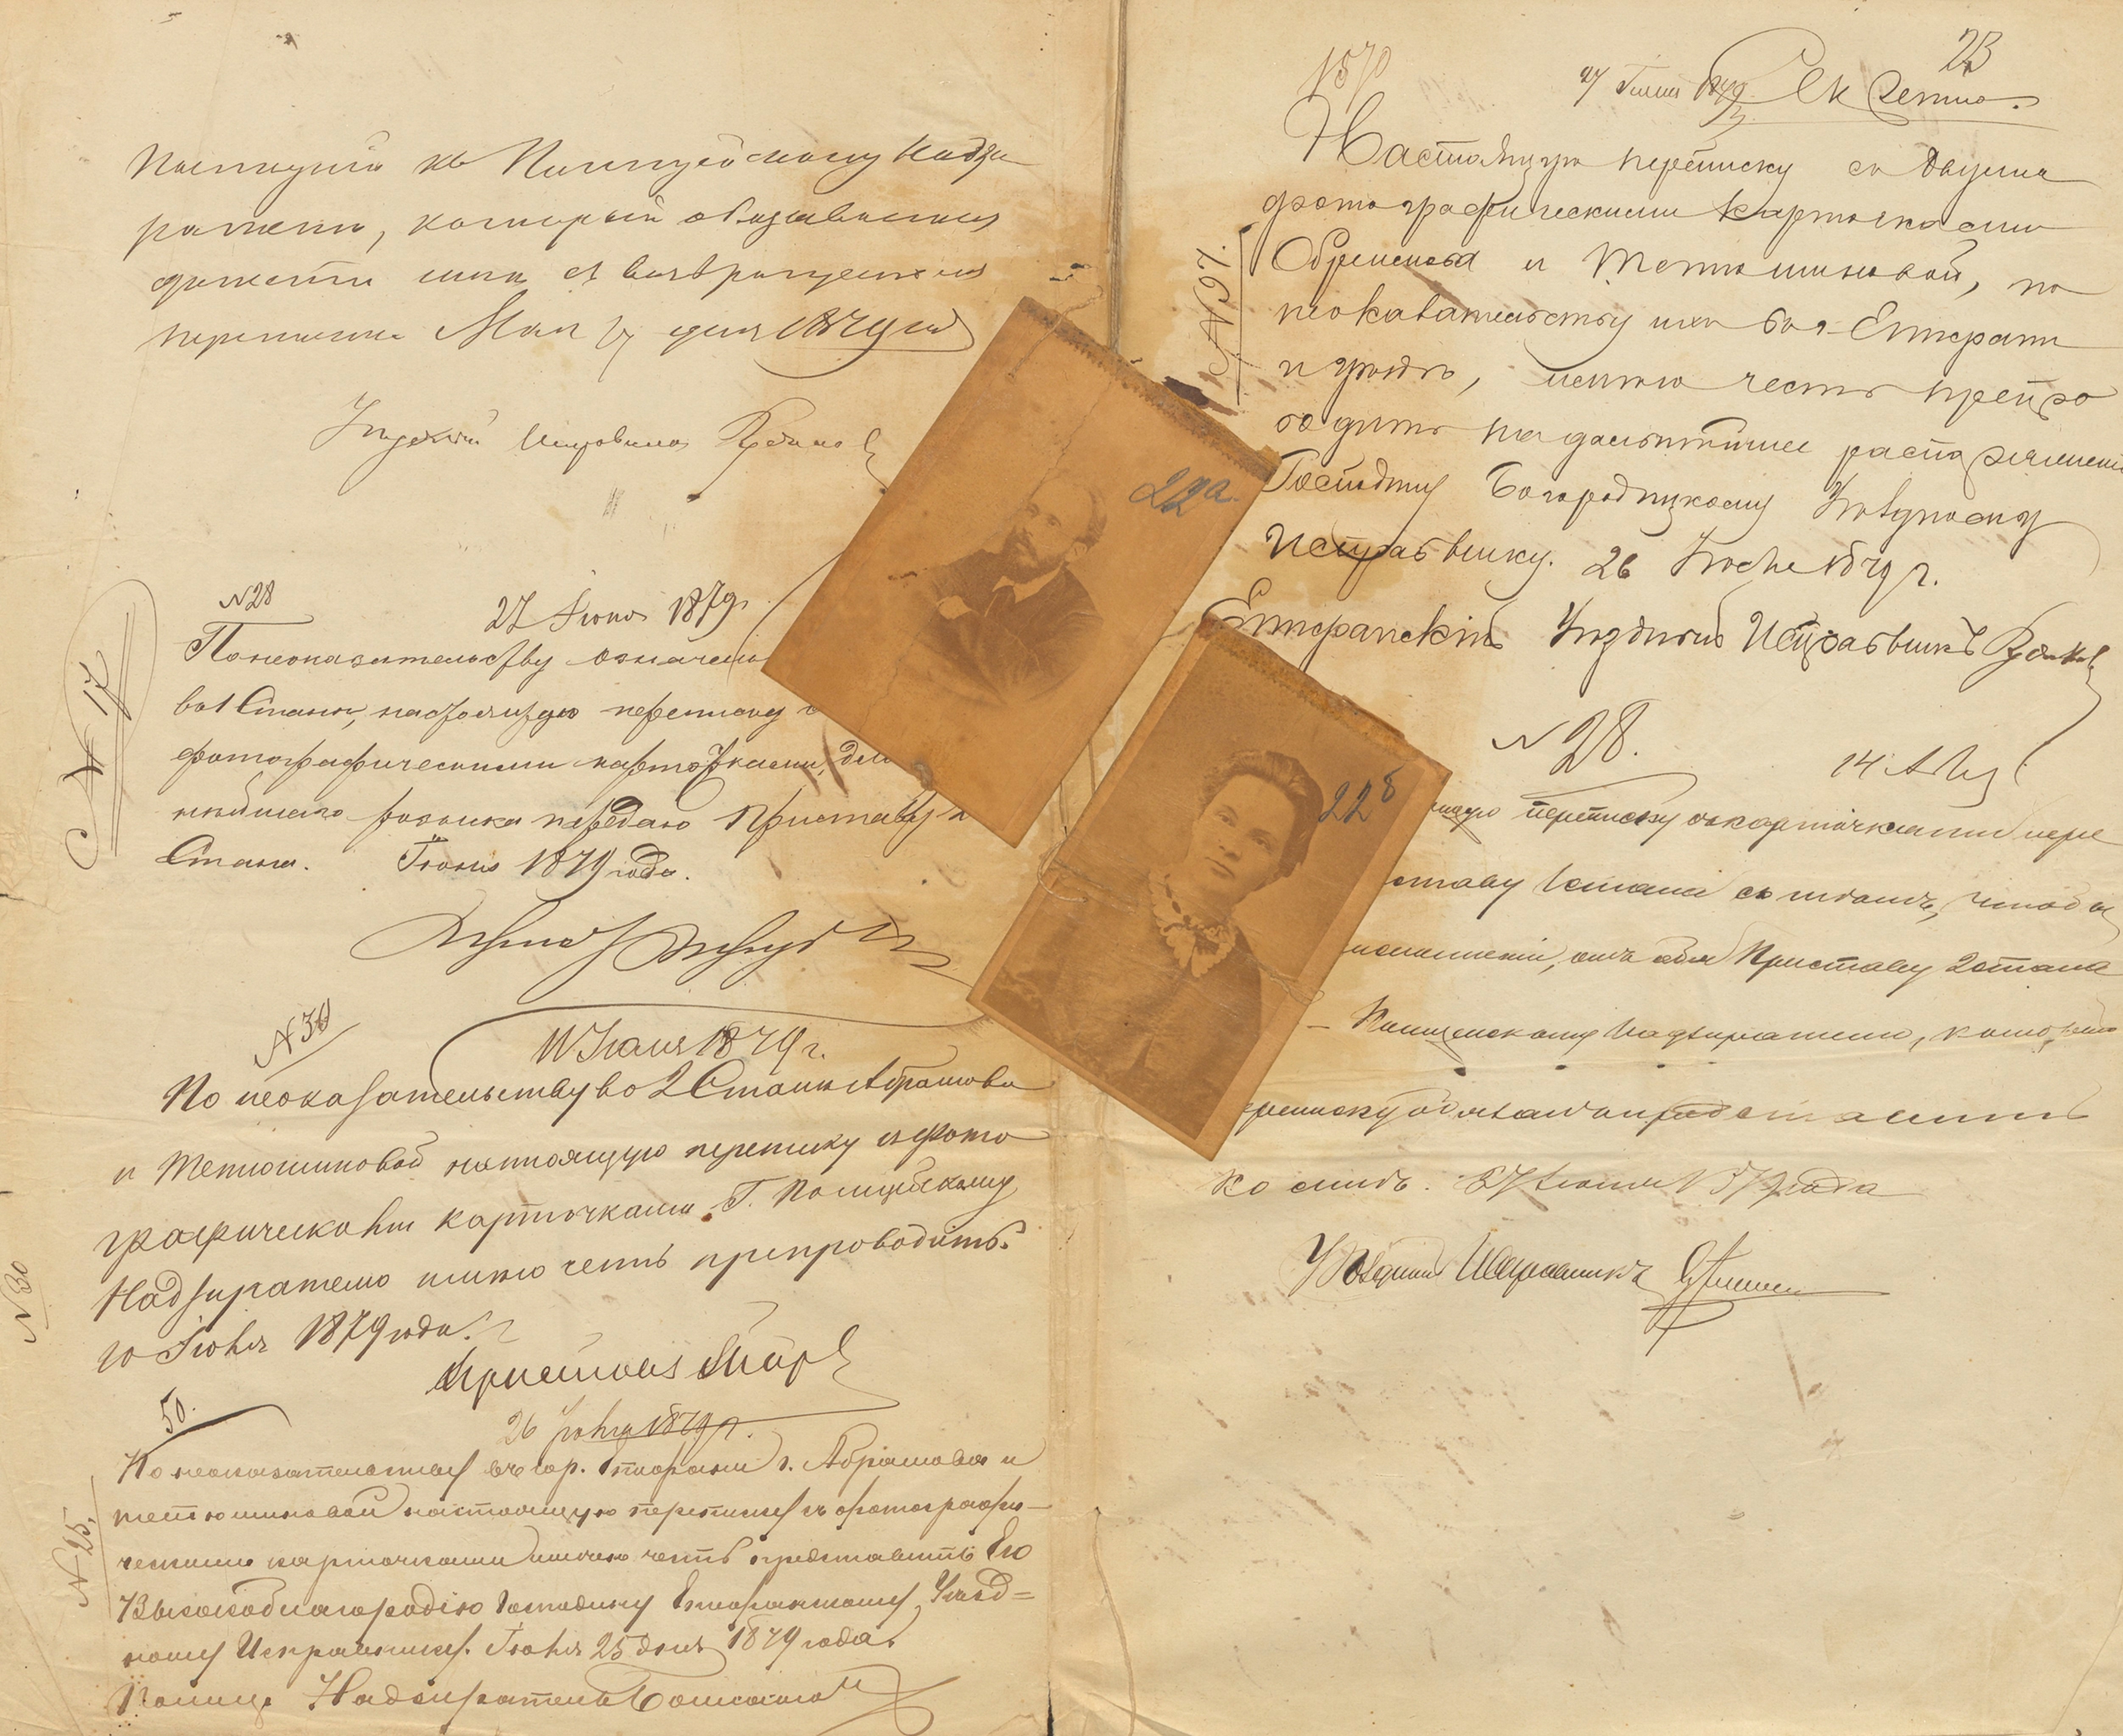 къ Полицейскому Надзи
рателю, который обязывается
съ возвращеніемъ
переписки Мая 1879 год
Уѣздный Исправникъ
№ 28
27 Іюня 1879 г.
№ 17
По неоказательству означен
во 1 Станѣ, настоящую переписку
фотографическими карточками, для
нѣйшаго розыска передаю Приставу 2
Стана. Іюня 1879 года.
№ 30
10 Іюля 1879 г.
По неоказательству во 2 Станѣ Абрамова
и Тетюшиновой настоящую переписку и фото
графическими карточками Г. Полицейскому
Надзирателю имѣю честь препроводить.
10 Іюля 1879 года.
№ 30
Приставъ
50.
26 Іюля 1879 г.
По неоказательству въ гор. Епифани г. Абрамова и
Тетюшиновой настоящую переписку съ фотографи-
№ 25.
ческими карточками имѣю честь представить Его
Высокоблагородію Господину Епифанскому Уѣзд=
ному Исправнику. Іюля 25 дня 1879 года.
Полиц. Надзиратель
22а.
22б
23
1570
27 Іюля 1879 Секретно.
Настоящую переписку съ двумя
фотографическими карточками
и Тетюшиновой, по
№ 97.
неоказательству ихъ въ г. Епифани
и уѣздѣ, имѣю честь препро
водить на дальнѣйшее распоряженіе
Господину Богородицкому Уѣздному
Исправнику. 26 Іюля 1879 г.
Епифанскій Уѣздный Исправникъ
№ 28.
14 Авг
переписку съ карточками пере
ставу 1 стана съ тѣмъ, чтобы
Приставу 2 стана
– Полицейскому Надзирателю, который
переписку обязанъ представить
ко мнѣ. 27 Іюля 1879 года
Уѣздный Исправникъ